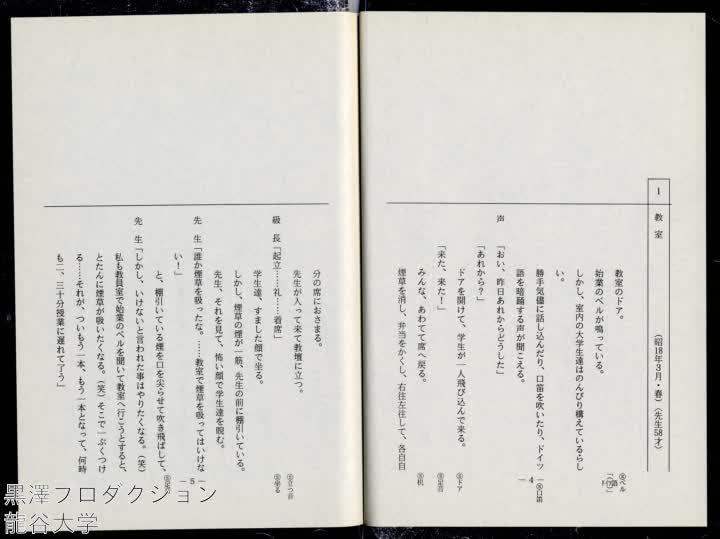 1 教室 (昭18年3月・春)(先生58才)
教室のドア。
始業のベルが鳴っている。
しかし、室内の大学生達はのんびり構えているらし
い。
勝手気儘に話し込んだり、口笛を吹いたり、ドイツ
語を暗踊する声が聞こえる。
声「おい、昨日あれからどうした」
「あれから?」
ドアを開けて、学生が一人飛び込んで来る。
「来た、来た!」
みんな、あわてて席へ戻る。
煙草を消し、弁当をかくし、右往左往して、各自自
㊥ベル
㊥口笛
㊥ドア
㊥足音
㊥机
― 4 ―
分の席におさまる。
先生が入って来て教壇に立つ。
級長「起立……礼……着席」
学生達、すました顔で坐る。
しかし、煙草の煙が一筋、先生の前に棚引いている。
先生、それを見て、怖い顔で学生達を睨む。
先生「誰か煙草を吸ったな。……教室で煙草を吸ってはいけな
い!」
と、棚引いている煙を口を尖らせて吹き飛ばして、
先生「しかし、いけないと言われた事はやりたくなる。(笑)
私も教員室で始業のベルを聞いて教室へ行こうとすると、
とたんに煙草が吸いたくなる。(笑)そこで一ぷくつけ
る……それが、ついもう一本、もう一本となって、何時
も二、三十分授業に遅れて了う」
㊥立つ音
㊥坐る
― 5 ―
黒澤プロダクション
龍谷大学